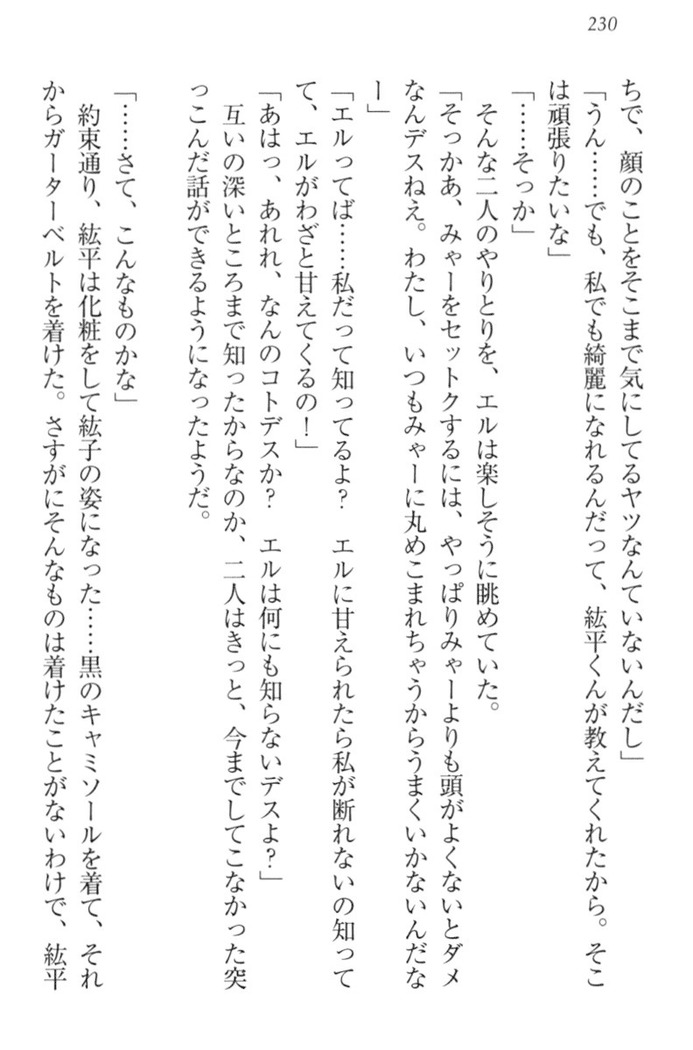 230
ちで、顔のことをそこまで気にしてるヤツなんていないんだし」
「うん……でも、私でも綺麗になれるんだって、紘平くんが教えてくれたから。そこ
は頑張りたいな」
「……そっか」
そんな二人のやりとりを、エルは楽しそうに眺めていた。
「そっかあ、みゃーをセットクするには、やっぱりみゃーよりも頭がよくないとダメ
なんデスねえ。わたし、いつもみゃーに丸めこまれちゃうからうまくいかないんだな
ー」
「エルってば……私だって知ってるよ？　エルに甘えられたら私が断れないの知って
て、エルがわざと甘えてくるの！」
「あはっ、あれれ、なんのコトデスか？　エルは何にも知らないデスよ？」
互いの深いところまで知ったからなのか、二人はきっと、今までしてこなかった突
っこんだ話ができるようになったようだ。
「……さて、こんなものかな」
約束通り、紘平は化粧をして紘子の姿になった……黒のキャミソールを着て、それ
からガーターベルトを着けた。さすがにそんなものは着けたことがないわけで、紘平